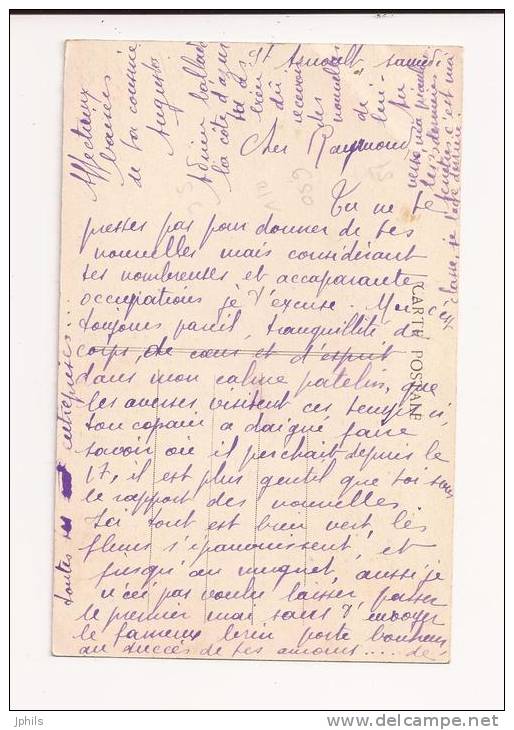 St Arnoult samedi
Cher Raymond,
Tu ne te
presses pas pour donner de tes
nouvelles mais considérant
tes nombreuses et accaparante
occupations je t'excuse. Moi c'est
toujours pareil, tranquillité de
corps, de coeur et d'esprit
dans mon calme patelin, que
les averses visitent ces temps ci,
ton copain a daigné faire
savoir où il perchait depuis le
17, il est plus gentil que toi sous
le rapport des nouvelles.
Ici tout est bien vert les
fleurs s'épanouissent, et
jusqu'au muguet, aussi je
n'ai pas voulu laisser passer
le premier mai sans t'envoyer
le fameux brin porte bonheur
au succès de tes amours.... de
toutes tes entreprises...
Affectueux
baisers
de ta cousine
Augusta
Adrien
la côte d'azur
bien
dû
recevoir
des nouvelles
de
lui
Au
verso,
les dernières
fenêtres c'est ma
classe, je
CARTE POSTALE
jphils
http://www.delcampe.net